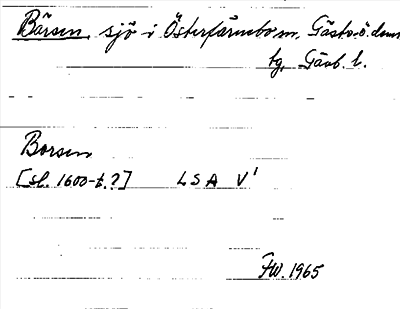 Bårsen, sjö i Österfärnebo sn, Gästr. ö. doms
tg, Gävb. l.
Borsen
[sl. 1600-t.?] LSA V'
FW. 1965